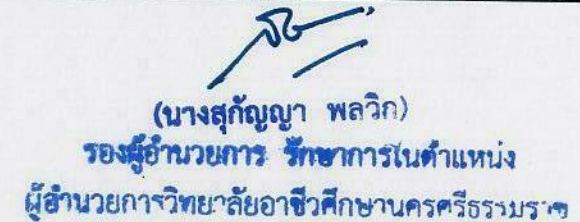 (นางสุกัญญา พลวิก)
รองผู้อำนวยการ รักษาการในตำแหน่ง
ผู้อำนวยการวิทยาลัยอาชีวศึกษานครศรีธรรมราช